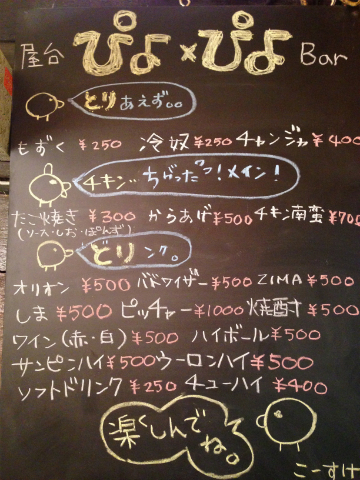 屋台 ぴよ×ぴよ Bar
とりあえず。。
もずく ¥250 冷奴 ¥250 チャンジャ ¥400
チキン… ちがったっ!メイン!
たこ焼き ¥300 からあげ ¥500 チキン南蛮 ¥70
(ソース・しお・ぽんず)
どりンク。
オリオン ¥500 バドワイザー ¥500 ZIMA ¥500
しま ¥500 ピッチャー ¥1000 焼酎 ¥500
ワイン(赤・白) ¥500 ハイボール ¥500
サンピンハイ ¥500 ウーロンハイ ¥500
ソフトドリンク ¥250 チューハイ ¥400
楽しんで
ね。
こーすけ